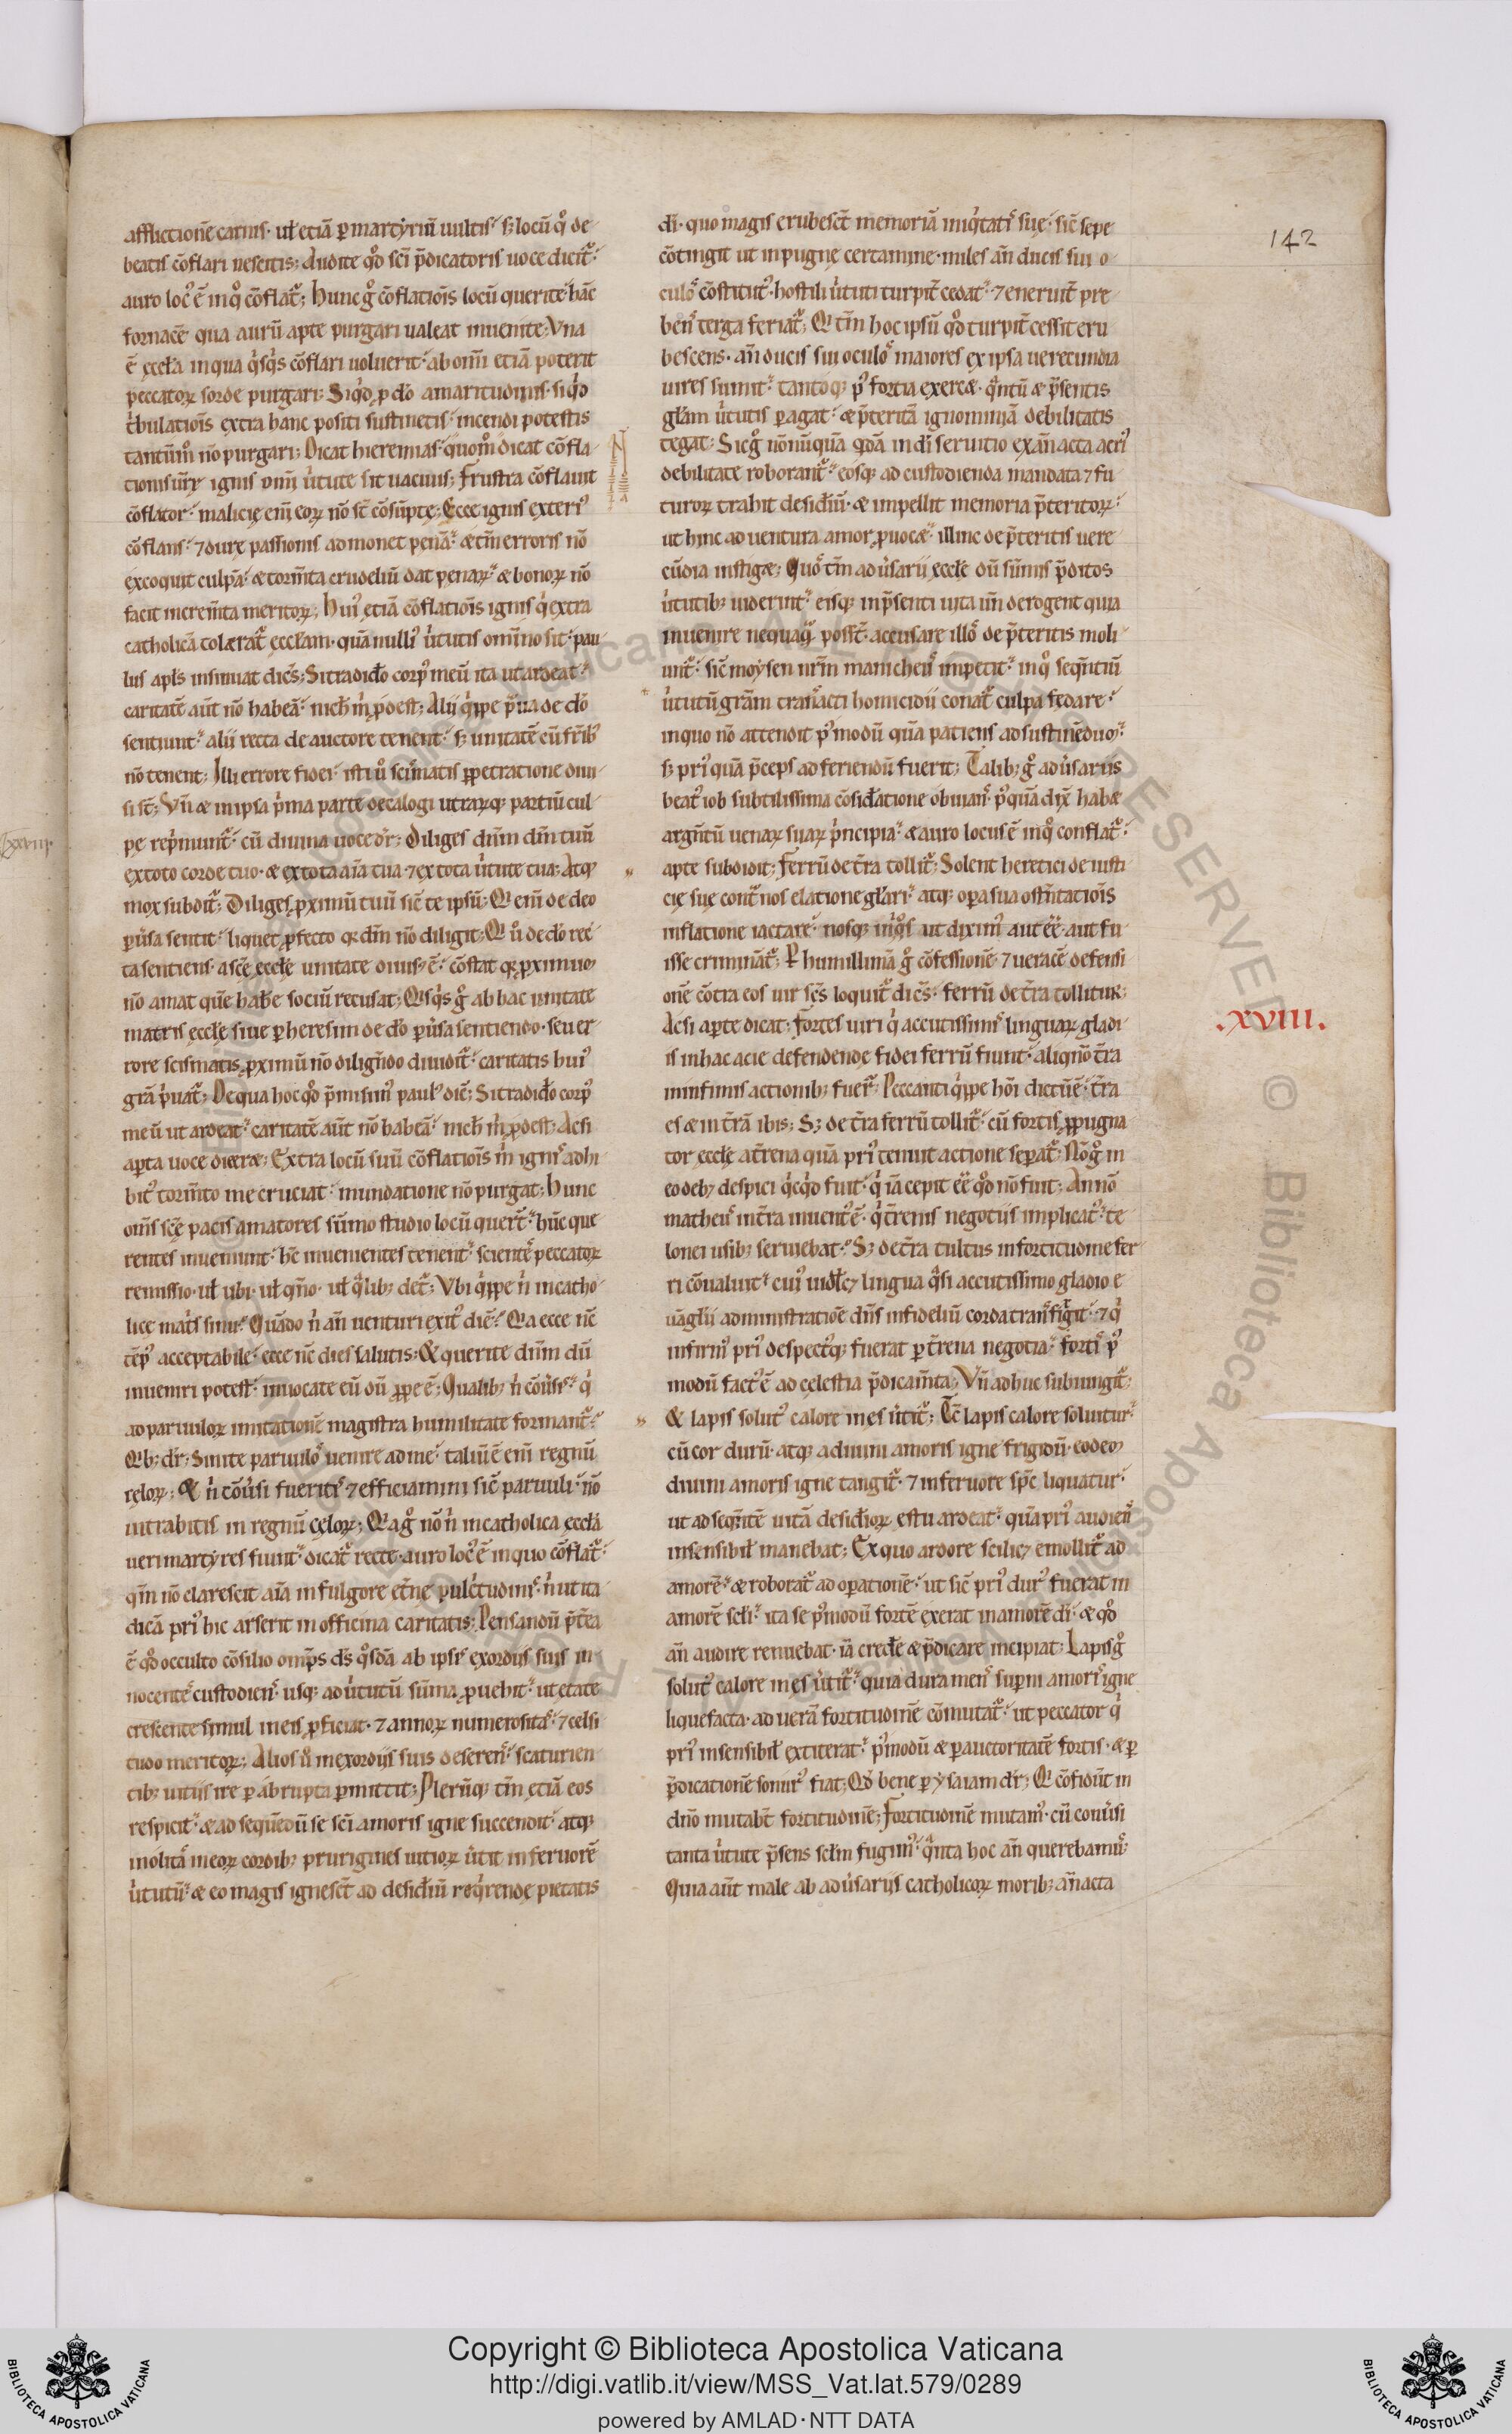 142
afflictionē carnis· uł etiā p martyriū uultis· sʒ locū q̊ de
beatis cōflari nescitis; Audite qd̊ scī p̄dicatoris uoce dicit᷑·
auro loc᷒ ē inq̊ cōflat᷑; Hunc g̊ cōflatiōis locū querite· hāc
fornacē qua aurū apte purgari ualeat inuenite; Vna
ē ęccła inqua q̇sq̇s cōflari uoluerit· ab omī etiā poterit
peccatoꝝ sorde purgari; Siq̇d ꝓ dō amaritudinis· siq̇d
ṫbulatiōis extra hanc positi sustinetis· incendi potestis
tantūm̊ nō purgari; Dicat hieremias· quom̊ dicat cōfla
tionis ūrę ignis omī u̇tute sit uacuus; Frustra cōflauit
cōflator· malicię em̄ eoꝝ nō st̄ cōsūpte; Ecce ignis exteri᷒
cōflans· ⁊ durę passionis admonet penā· ⁊ tm̄ erroris nō
excoquit culpā· & torm̄ta crudeliū dat penaꝝ· & bonoꝝ nō
facit increm̄ta meritoꝝ; Hui᷒ etiā cōflatiōis ignis q̇ extra
catholicā tolerat᷑ ęccłam· quā nulli᷒ u̇tutis omīno sit· pau
lus apłs insinuat dicēs; Si tradido corp᷒ meū ita ut ardeat·
caritatē aūt nō habeā· nich̄ ṁ ꝓdest; Alii q̇ppe p̄ua de dō
sentiunt· alii recta de auctore tenent· sʒ unitatē cū fr̄ib᷒
nō tenent; Illi errore fidei· isti u̇ scismatis ꝑpetratione diui
si st̄; Vn̄ & inipsa ṗma parte decalogi utraꝝqꝫ partiū cul
pe reṗmunt᷑· cū diuina uoce dr̄; Diliges dn̄m dm̄ tuū
extoto corde tuo· & extota aīa tua· ⁊ ex tota u̇tute tua; Atqꝫ
mox subdit᷑; Diliges ꝓximū tuū sic̄ te ipsū; Q̇ em̄ de deo
ꝑu̇sa sentit· liquet ꝓfecto qꝫ dm̄ nō diligit; Q̇ u̇ de dō rec
ta sentiens· a scē ęccłe unitate diuis᷒ ē· cōstat qꝫ ꝓximū
nō amat quē habē sociū recusat; Q̇sq̇s g̊ ab hac unitate
matris ęccłę siue ꝑ heresim de dō ꝑu̇sa sentiendo· seu er
rore scismatis ꝓximū nō diliḡndo diuidit᷑· caritatis hui᷒
grā ṗuat᷑; De qua hoc qd̊ p̄misim᷒ paul᷒ dic̄; Si tradido corp᷒
meū ut ardeat· caritatē aūt nō habeā· nich̄ ṁ ꝓdest; Acsi
aꝑta uoce diceret; Extra locū suū cōflatiōis ṁ ignis adhi
bit᷒ torm̄to me cruciat· mundatione nō purgat; Hunc
om̄s scę̄ pacis amatores sūmo studio locū querūt· hūc que
rentes inueniunt· hc̄ inuenientes tenent· scientes peccatoꝝ
remissio· uł ubi· uł qn̄o· uł q̇libꝫ det᷑; Vbi q̇ppe n̄ incatho
lice matīs sinu· Quādo n̄ an̄ uenturi exit᷒ diē· Q̇a ecce nc̄
tēp᷒ acceptabile· ecce nc̄ dies salutis; & querite dn̄m dū
inueniri potest· inuocate eū dū ꝓpe ē; Qualibꝫ n̄ cōu̇sis· q̇
ad paruuloꝝ imitationē magistra humilitate formant᷑·
Q̇bꝫ dr̄; Sinite paruulos uenire ad me· taliū ē em̄ regnū
cęloꝝ; & n̄ cōu̇si fueritis ⁊ efficiamini sic̄ paruuli· nō
intrabitis in regnū cęloꝝ; Q̇a g̊ nō n̄ incatholica ęccła
ueri martyres fiunt· dicat᷑ recte· auro loc᷒ ē inquo cōflat᷑·
qm̄ nō clarescit aīa in fulgore et̄ne pulc̄tudinis· n̄ ut ita
dicā pri᷒ hic arserit in officina caritatis; Pensandū p̄t̄ea
ē qd̊ occulto cōsilio omp̄s ds̄ q̊sdā ab ipsis exordiis suis in
nocentes custodiens usqꝫ ad u̇tutū sūma ꝓuehit· ut etate
crescente simul ineis ꝓficiat· ⁊ annoꝝ numerositas· ⁊ celsi
tudo meritoꝝ; Alios u̇ inexordiis suis deserens· scaturien
tibꝫ uitiis ire ꝑ abrupta ꝑmittit; Plerūqꝫ tm̄ etiā eos
respicit· & ad sequēdū se scī amoris igne succendit· atqꝫ
inolitā ineoꝝ cordibꝫ prurigines uitioꝝ u̇tit in feruorē
u̇tutū· & eo magis ignesc̄t ad desideriū req̇rende pietatis
dī· quo magis erubesc̄t memoriā iniq̇tatis sue· sic̄ sepe
cōtingit ut inpugne certamine· miles an̄ ducis sui o
culos cōstitut᷒· hostili u̇tuti turpit̄ cedat· ⁊ eneruit̄ pre
bens terga feriat᷑; Q̇ tm̄ hoc ipsū qd̊ turpit̄ cessit eru
bescens· an̄ ducis sui oculos maiores ex ipsa uerecundia
uires sumit· tantoqꝫ p᷒ fortia exercet· q̄ntū & p̄sentis
głam u̇tutis ꝑagat· & p̄teritā ignominiā debilitatis
tegat; Sic g̊ nōnūquā q̇dā in dī seruitio exan̄acta acri᷒
debilitate roborant᷑· eosqꝫ ad custodienda mandata ⁊ fu
turoꝝ trahit desideriū· & impellit memoria p̄teritoꝝ·
ut hinc ad uentura amor ꝓuocet· illinc de p̄teritis uere
cūdia instiget; Quos tm̄ adu̇sarii ęccłe dū sūmis p̄ditos
u̇tutibꝫ uiderint· eisqꝫ inp̄senti uita un̄ derogent quia
inuenire nequaq̄ possēt· accusare illos de p̄teritis moli
unt᷑· sic̄ moysen nr̄m manicheus impetit· inq̊ seq̄ntiū
u̇tutū grām transacti homicidii conat᷑ culpa fedare·
inquo nō attendit p᷒modū quā patiens ad sustinēduꝫ·
sʒ pri᷒ quā p̄ceps ad feriendū fuerit; Talibꝫ g̊ adu̇sariis
beat᷒ iob subtilissima cōsideratione obuians· p᷒quā dix̄ habet
argn̄tū uenaꝝ suaꝝ ṗncipia· & auro locus ē inq̊ conflat᷑·
apte subdidit; Ferrū de t̄ra tollit᷑; Solent heretici de iusti
cię sue cont̄ nos elatione głari· atqꝫ oꝑa sua ostn̄tatiōis
inflatione iactare· nosqꝫ iniq̊s ut dixim᷒ aut ēē· aut fu
isse criminant᷑; Ꝑ humillimā g̊ cōfessionē· ⁊ ueracē defensi
onē cōtra eos uir scs̄ loquit᷑ dicēs· ferrū de t̄ra tollitur;
.XVIII.
Acsi aꝑte dicat; Fortes uiri q̇ accutissimis linguaꝝ gladi
is inhac acie defendende fidei ferrū fiunt· aliqn̄o t̄ra
ininfimis actionibꝫ fuer̄; Peccanti q̇ppe hoī dictū ē· t̄ra
es & in t̄rā ibis; Sʒ de t̄ra ferrū tollit᷑· cū fortis ꝓpugna
tor ęccłę a t̄rena quā pri᷒ tenuit actione seꝑat᷑; Nō g̊ in
eo debꝫ despici q̇cq̇d fuit· q̇ iā cepit ēē qd̊ nō fuit; An nō
matheus int̄ra inuent᷒ ē· q̇ t̄renis negotiis implicat᷒· te
lonei usibꝫ seruiebat· Sʒ de t̄ra tultus infortitudine fer
ri cōualuit· cui᷒ uidelicꝫ lingua q̇si accutissimo gladio e
uāglii administratiōe dn̄s infideliū corda transfigit· ⁊ q̇
infirm᷒ pri᷒ despect᷒qꝫ fuerat ꝑ t̄rena negotia· fortis p᷒
modū fact᷒ ē ad cęlestia p̄dicam̄ta; Vn̄ adhuc subiungit᷑;
& lapis solut᷒ calore in ęs u̇tit᷑; Tc̄ lapis calore soluitur·
cū cor durū· atqꝫ a diuini amoris igne frigidū· eodeꝫ
diuini amoris igne tangit᷑· ⁊ inferuore spc̄ liquatur·
ut ad seq̄ntē uitā desiderioꝝ estu ardeat· quā pri᷒ audiens
insensibił manebat; Ex quo ardore scilicꝫ emollit᷑ ad
amorē· & roborat᷑ ad oꝑationē· ut sic̄ pri᷒ dur᷒ fuerat in
amorē scłi· ita se p᷒modū fortē exerat inamorē dī· & qd̊
an̄ audire renuebat· iā credere & p̄dicare incipiat; Lapis g̊
solut᷒ calore in ęs u̇tit᷑· quia dura mens suꝑni amoris igne
liquefacta· ad uerā fortitudinē cōmutat᷑· ut peccator q̇
pri᷒ insensibił extiterat· p᷒modū & ꝑ auctoritatē fortis· & ꝑ
p̄dicationē sonir᷒ fiat; Qd̊ bene ꝑ ysaiam dr̄; Q̇ cōfidūt in
dn̄o mutabt̄ fortitudinē; Fortitudinē mutam᷒· cū conu̇si
tanta u̇tute p̄sens scłm fugim᷒· q̄nta hoc an̄ querebamus;
Quia aūt male ab adu̇sariis catholicoꝝ moribꝫ an̄acta
Copyright © Biblioteca Apostolica Vaticana
http://digi.vatlib.it/view/MSS_Vat.lat.579/0289
powered by AMLAD·NTT DATA
BIBLIOTECA APOSTOLICA VATICANA
BIBLIOTECA APOSTOLICA VATICANA